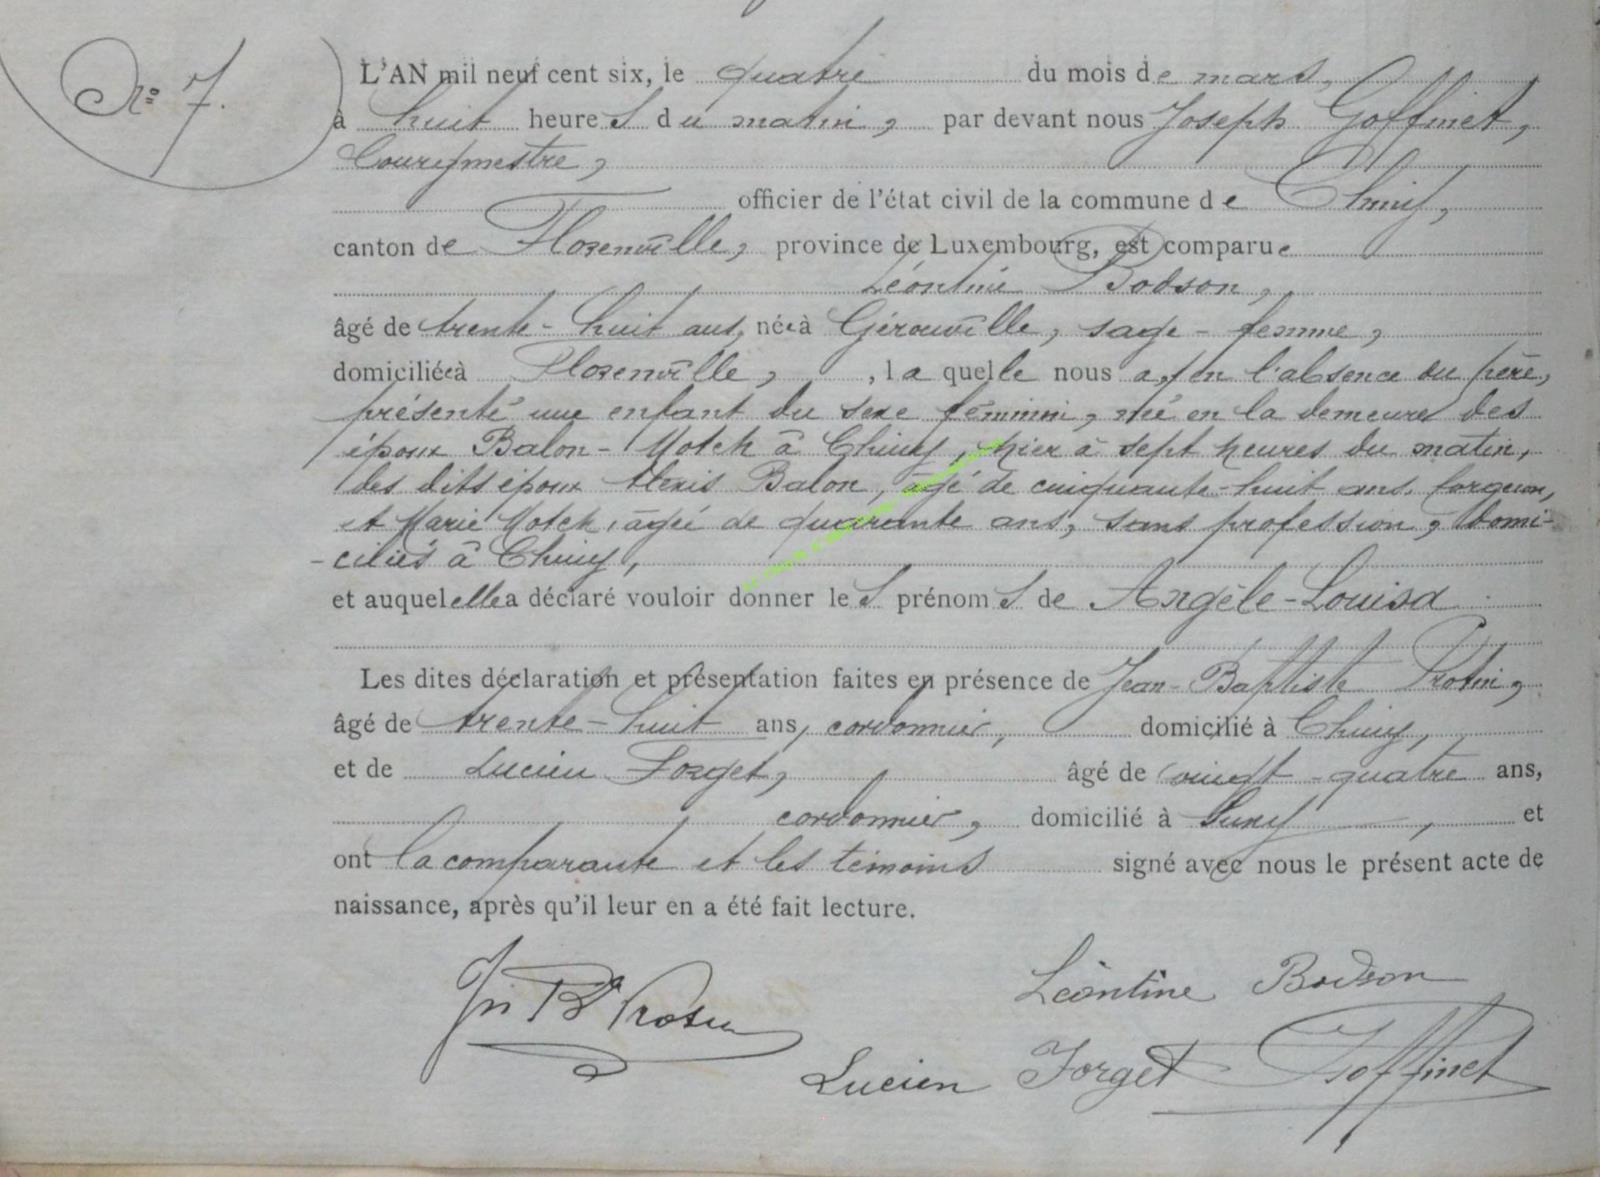 N° 7.
L'AN mil neuf cent six, le quatre du mois de mars,
à huit heures du matin, par devant nous Joseph Goffinet,
Bourgmestre,
officier de l'état civil de la commune de Chiny,
canton de Florenville, province de Luxembourg, est comparue
Léontine Bodson,
âgé de trente-huit ans, née à Gérouville, sage-femme,
domiciliée à Florenville, , la quelle nous a, en l'absence du père,
présenté une enfant du sexe féminin, née en la demeure des
époux Balon-Motch à Chiny, hier à sept heures du matin,
des dits époux Alexis Balon, âgé de cinquante-huit ans, forgeron,
et Marie Motch, âgée de quarante ans, sans profession, domi-
-ciliés à Chiny,
et auquel elle a déclaré vouloir donner les prénoms de Angèle-Louisa
Les dites déclaration et présentation faites en présence de Jean-Baptiste Protin,
âgé de trente-huit ans, cordonnier, domicilié à Chiny,
et de Lucien Forget, âgé de vingt-quatre ans,
cordonnier, domicilié à Suxy, et
ont la comparante et les témoins signé avec nous le présent acte de
naissance, après qu'il leur en a été fait lecture.
Léontine Bodson
Jn Bte Protin
Lucien Forget Goffinet